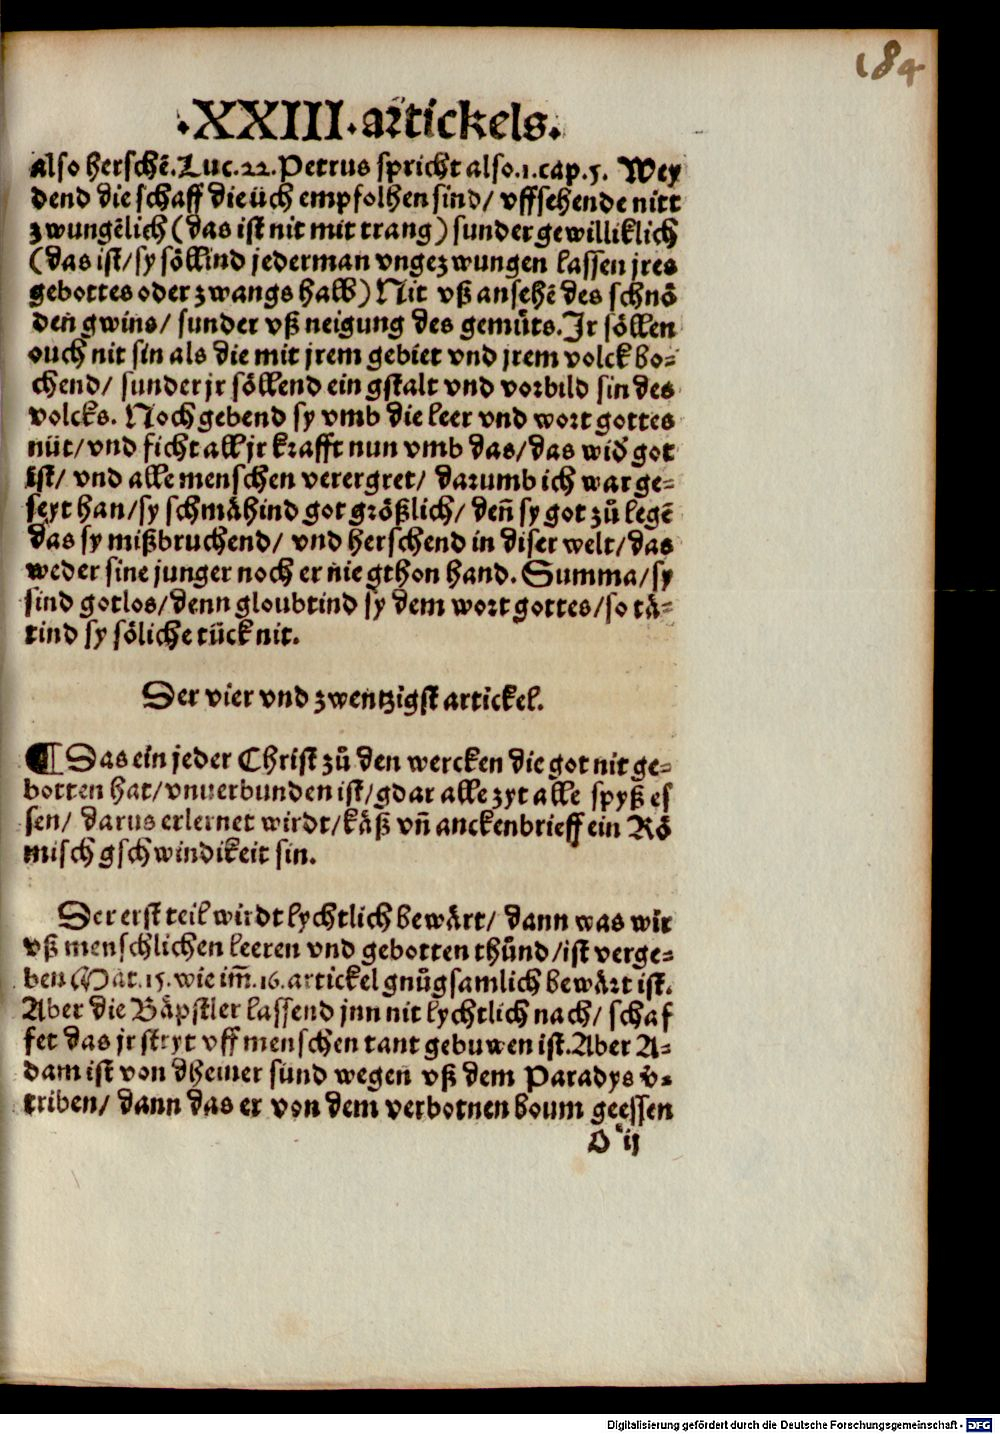 184
.XXIII.artickels.
also herschē.Luc.22.Petrus spricht also.1.cap.5. Wey
dend die schaff die üch empfolhen sind/ vffsehende nitt
zwungēlich (das ist nit mit trang) sunder gewilliklich
(das ist/sy söllind jederman vngezwungen lassen jres
gebottes oder zwangs halb) Nit vß ansehē des schnö
den gwins/ sunder vß neigung des gemüts.Jr söllen
ouch nit sin als die mit jrem gebiet vnd jrem volck bo⸗
chend/ sunder jr söllend ein gstalt vnd vorbild sin des
volcks. Noch gebend sy vmb die leer vnd wort gottes
nüt/vnd ficht all jr krafft nun vmb das/das wid̕ got
ist/ vnd alle menschen verergret/ darumb ich war ge⸗
seyt han/sy schmähind got größlich/ den̄ sy got zů legē
das sy mißbruchend/ vnd herschend in diser welt/das
weder sine junger noch er nie gthon hand. Summa/sy
sind gotlos/denn gloubtind sy dem wort gottes/so tä⸗
tind sy söliche tück nit.
Der vier vnd zwentzigst artickel.
¶ Das ein jeder Christ zů den wercken die got nit ge⸗
botten hat/vnuerbunden ist/gdar alle zyt alle spyß es
sen/ darus erlernet wirdt/käß vn̄ anckenbrieff ein Rö
misch gschwindikeit sin.
Der erst teil wirdt lychtlich bewärt/ dann was wir
vß menschlichen leeren vnd gebotten thůnd/ist verge⸗
ben Mat.15.wie im̄.16.artickel gnůgsamlich bewärt ist.
Aber die Bäpstler lassend jnn nit lychtlich nach/ schaf
fet das jr stryt vff menschen tant gebuwen ist.Aber A⸗
dam ist von dheiner sünd wegen vß dem Paradys v̄⸗
triben/ dann das er von dem verbotnen boum geessen
D ij
Digitalisierung gefördert durch die Deutsche Forschungsgemeinschaft - DFG